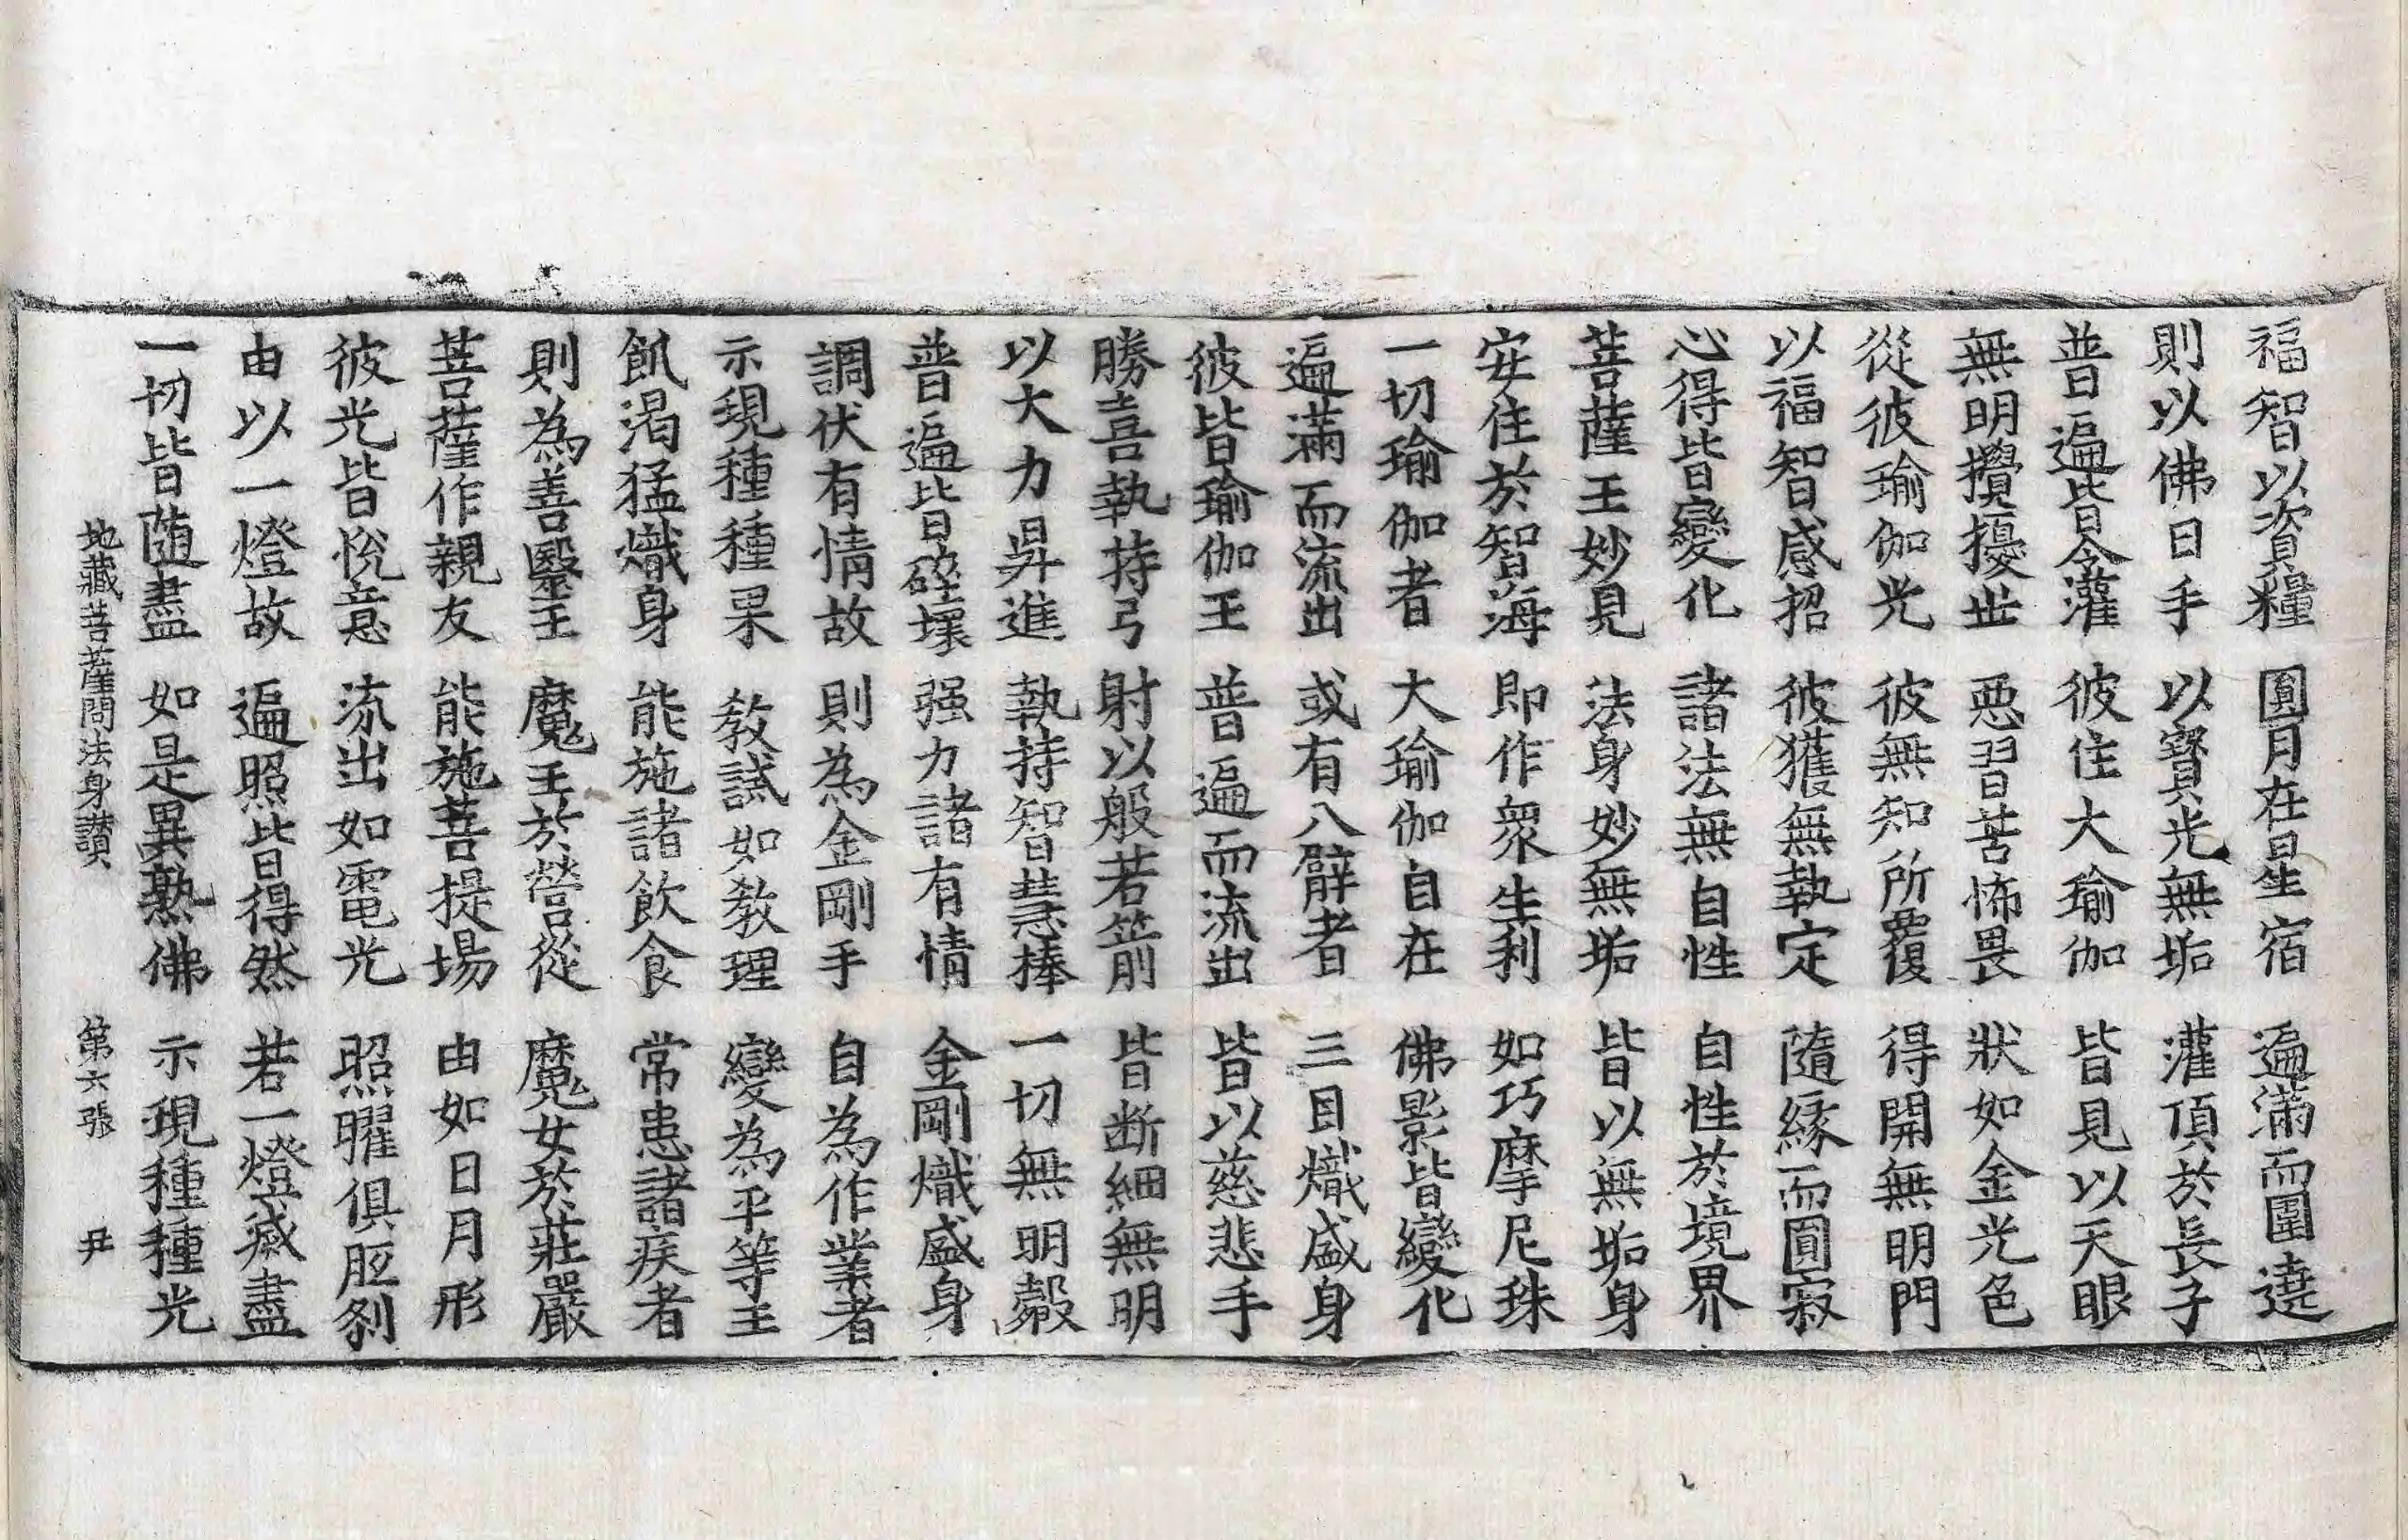 福智以資糧 圓月在星宿 遍滿而圍遶
則以佛日手 以寶光無垢 灌頂於長子
普遍皆令灌 彼住大瑜伽 皆見以天眼
無明攪擾世 惡習苦怖畏 狀如金光色
從彼瑜伽光 彼無知所覆 得開無明門
以福智感招 彼獲無執定 隨緣而圓寂
心得皆變化 諸法無自性 自性於境界
菩薩王妙見 法身妙無垢 皆以無垢身
安住於智海 即作衆生利 如巧摩尼珠
一切瑜伽者 大瑜伽自在 佛影皆變化
遍滿而流出 或有八臂者 三目熾盛身
彼皆瑜伽王 普遍而流出 皆以慈悲手
勝喜執持弓 射以般若箭 皆断細無明
以大力昇進 執持智慧棒 一切無明㲉
普遍皆碎壞 强力諸有情 金剛熾盛身
調伏有情故 則為金剛手 自為作業者
示現種種果 教試如教理 變為平等王
飢渴猛熾身 能施諸飲食 常患諸疾者
則為善醫王 魔王於營從 魔女於莊嚴
菩薩作親友 能施菩提場 由如日月形
彼光皆悅意 流出如電光 照曜俱胝刹
由以一燈故 遍照皆得然 若一燈滅盡
一切皆随盡 如是異熟佛 示現種種光
地藏菩薩問法身讃 第六張 尹